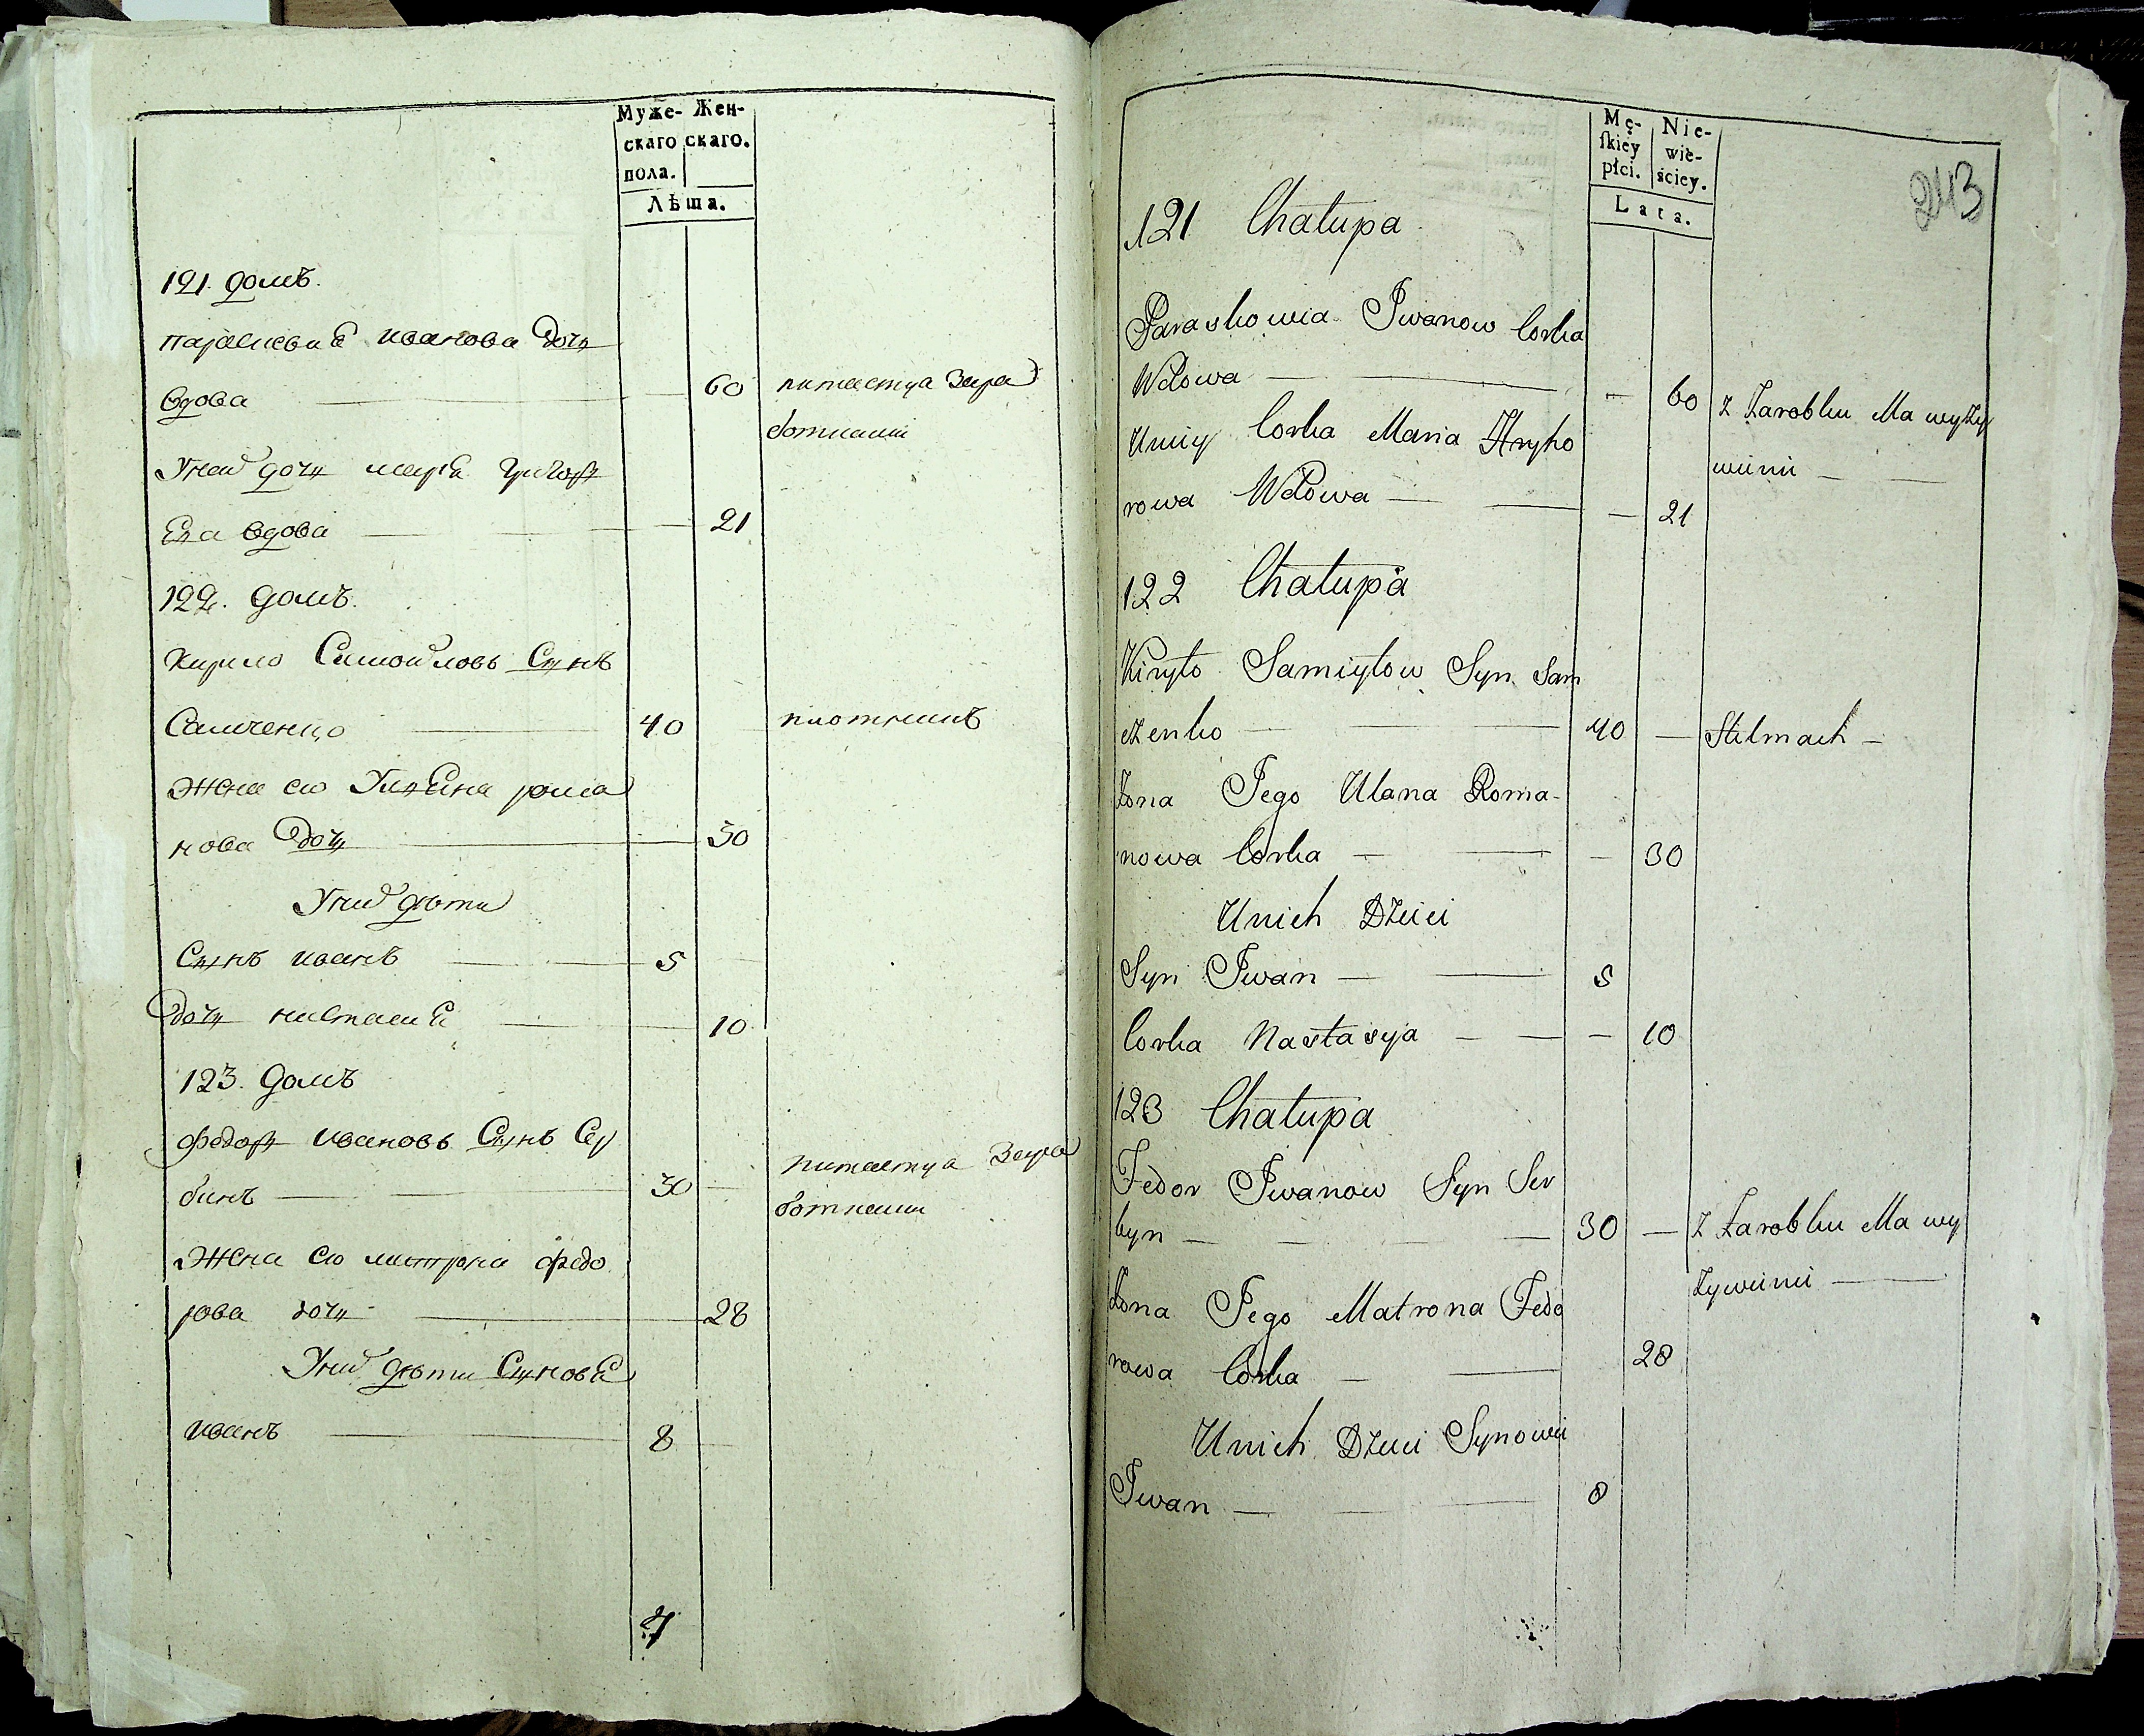 Муже- Жен-
скаго скаго.
пола.
Лѣта.
121. домъ.
параскевиа иванова дочь
вдова — 60 питаетца зара
ботками
У неи дочь мариа григорь
ева вдова — 21
122. домъ.
кирило Самоиловъ Сынъ
Самченко — 40 плотникъ
жена ево Ульяна рома
нова дочь — 30
У них дѣти
Сынъ иванъ — 5
дочь настасиа — 10
123. домъ
федоръ ивановъ Сынъ Сер
бинъ — 30 — питаетца зара
ботками
жена ево матрона федо
рова дочь — 28
У них дѣти Сыновьа
иванъ — 8
4
Mę- Nie-
skiey wie-
płci. sciey.
Lata.
243
121 Chałupa
Paraskowia Iwanow Corka
Wdowa — — 60 z Zarobku Ma wyży
wienie —
Uniey Corka Maria Hryho
rowa Wdowa — — 21
122 Chałupa
Kiryło Samiyłow Syn Sam
czenko — 40 — Stelmach —
Żona Jego Ulana Roma-
nowa Corka — — 30
Unich Dzieci
Syn Iwan — 5
Corka Nastasya — — 10
123 Chałupa
Fedor Iwanow Syn Ser
byn — 30 — z Zarobku Ma wy
żywienie —
Żona Jego Matrona Fedo
rowa Corka — 28
Unich Dzieci Synowie
Iwan — 8